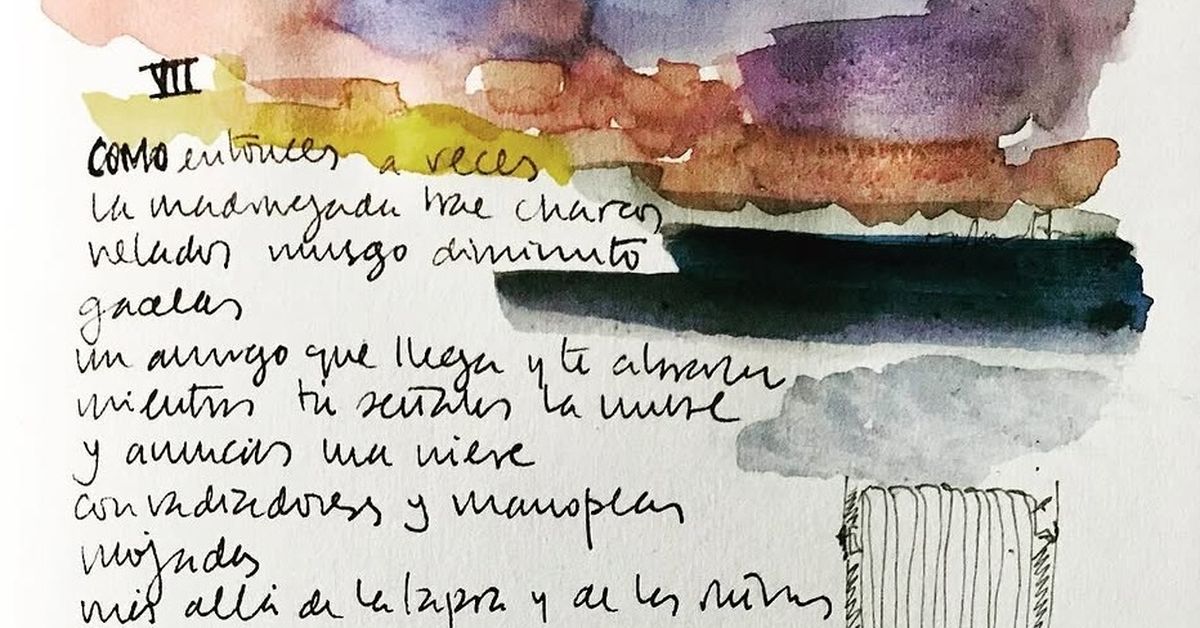 VII
COMO entonces a veces
la madrugada trae charcos
helados musgo diminuto
gacelas
un amigo que llega y te abraza
mientras tú señalas la nube
y anuncias una nieve
con radiadores y manoplas
mojadas
más allá de la tapia y de las ruinas